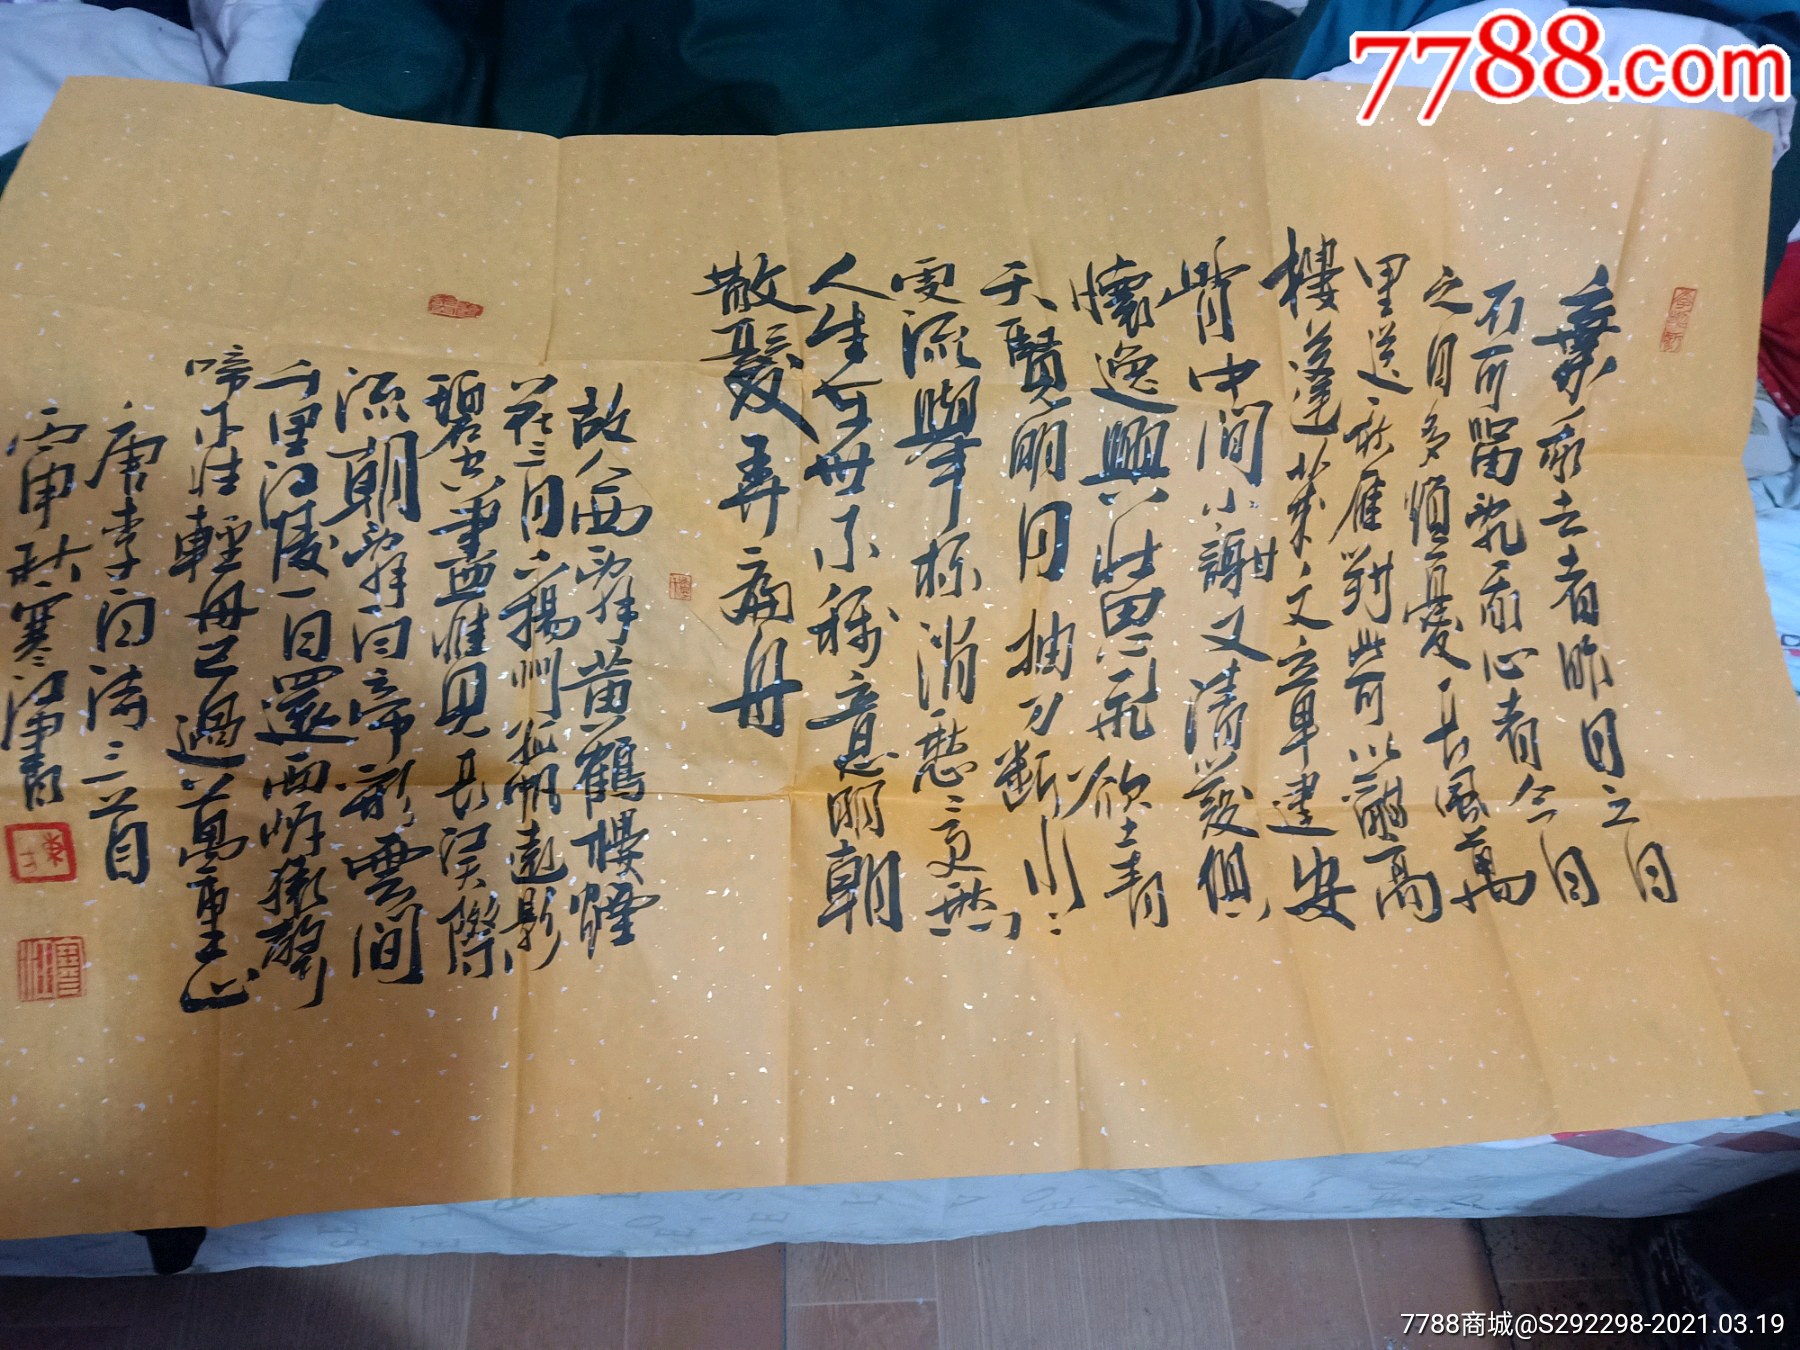 7788.com
棄我去者昨日之日
不可留亂我心者今日
之日多煩憂長風萬
里送秋雁對此可以酣高
樓蓬萊文章建安
骨中間小謝又清發俱
懷逸興壯思飛欲上青
天覽明月抽刀斷水〻
更流舉杯消愁〻更愁
人生在世不稱意明朝
散髮弄扁舟
故人西辭黃鶴樓煙
花三月下揚州孤帆遠影
碧空盡惟見長江天際
流朝辭白帝彩雲間
千里江陵一日還兩岸猿聲
啼不住輕舟已過萬重山
唐李白詩三首
丙申秋寒江書
7788商城@S292298-2021.03.19